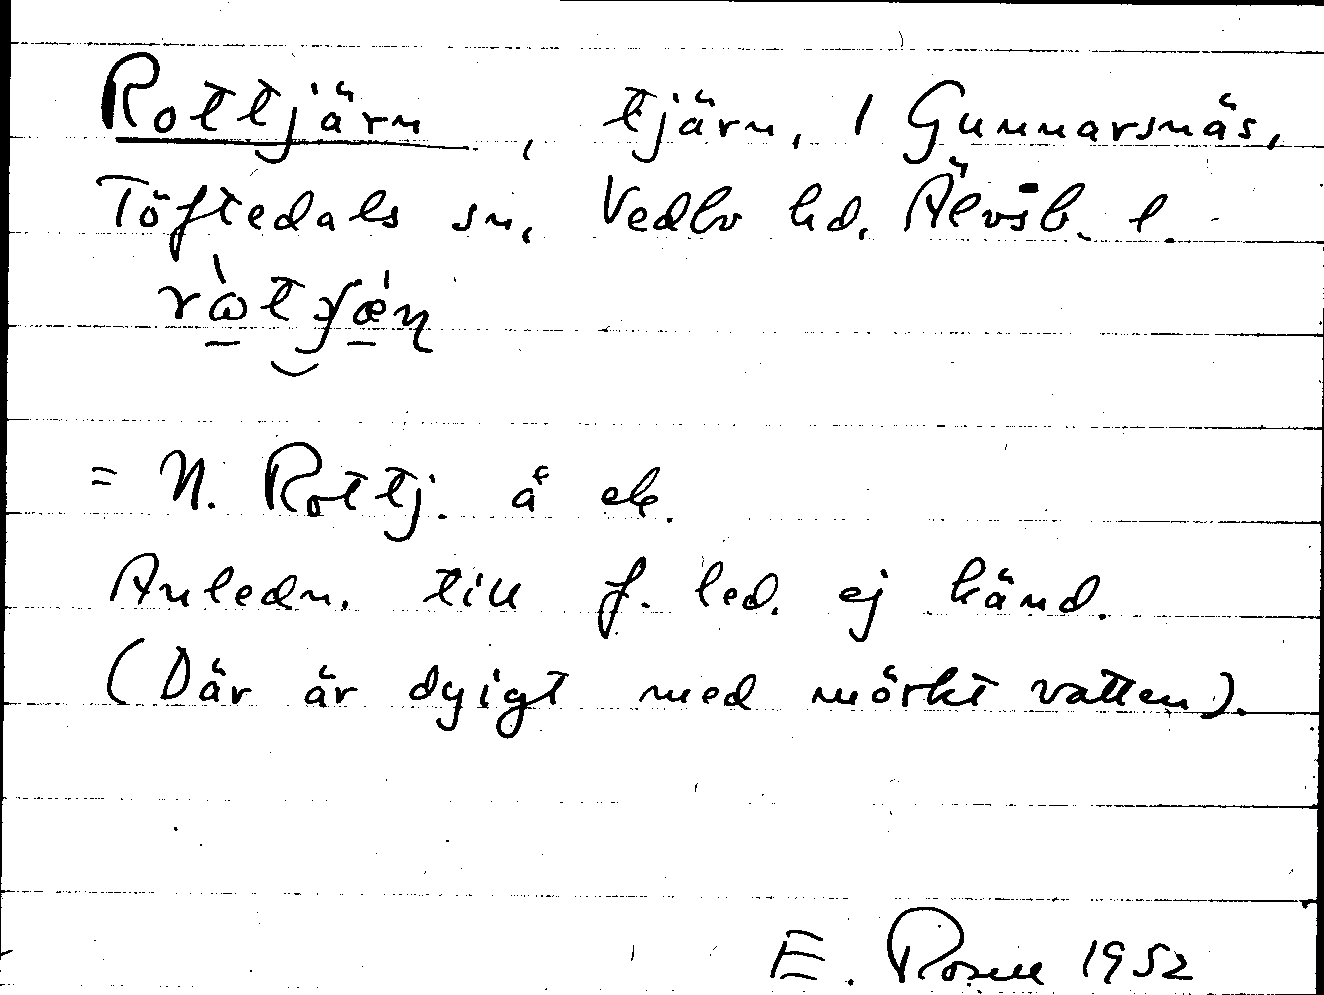 Rottjärn, tjärn, 1 Gunnarsnäs,
Töftedals sn, Vedbo hd. Älvsb. l.
= N. Rottj. å ek.
Anledn. till f. led. ej känd.
(Där är dyigt med mörkt vatten).
E. Rosell 1952